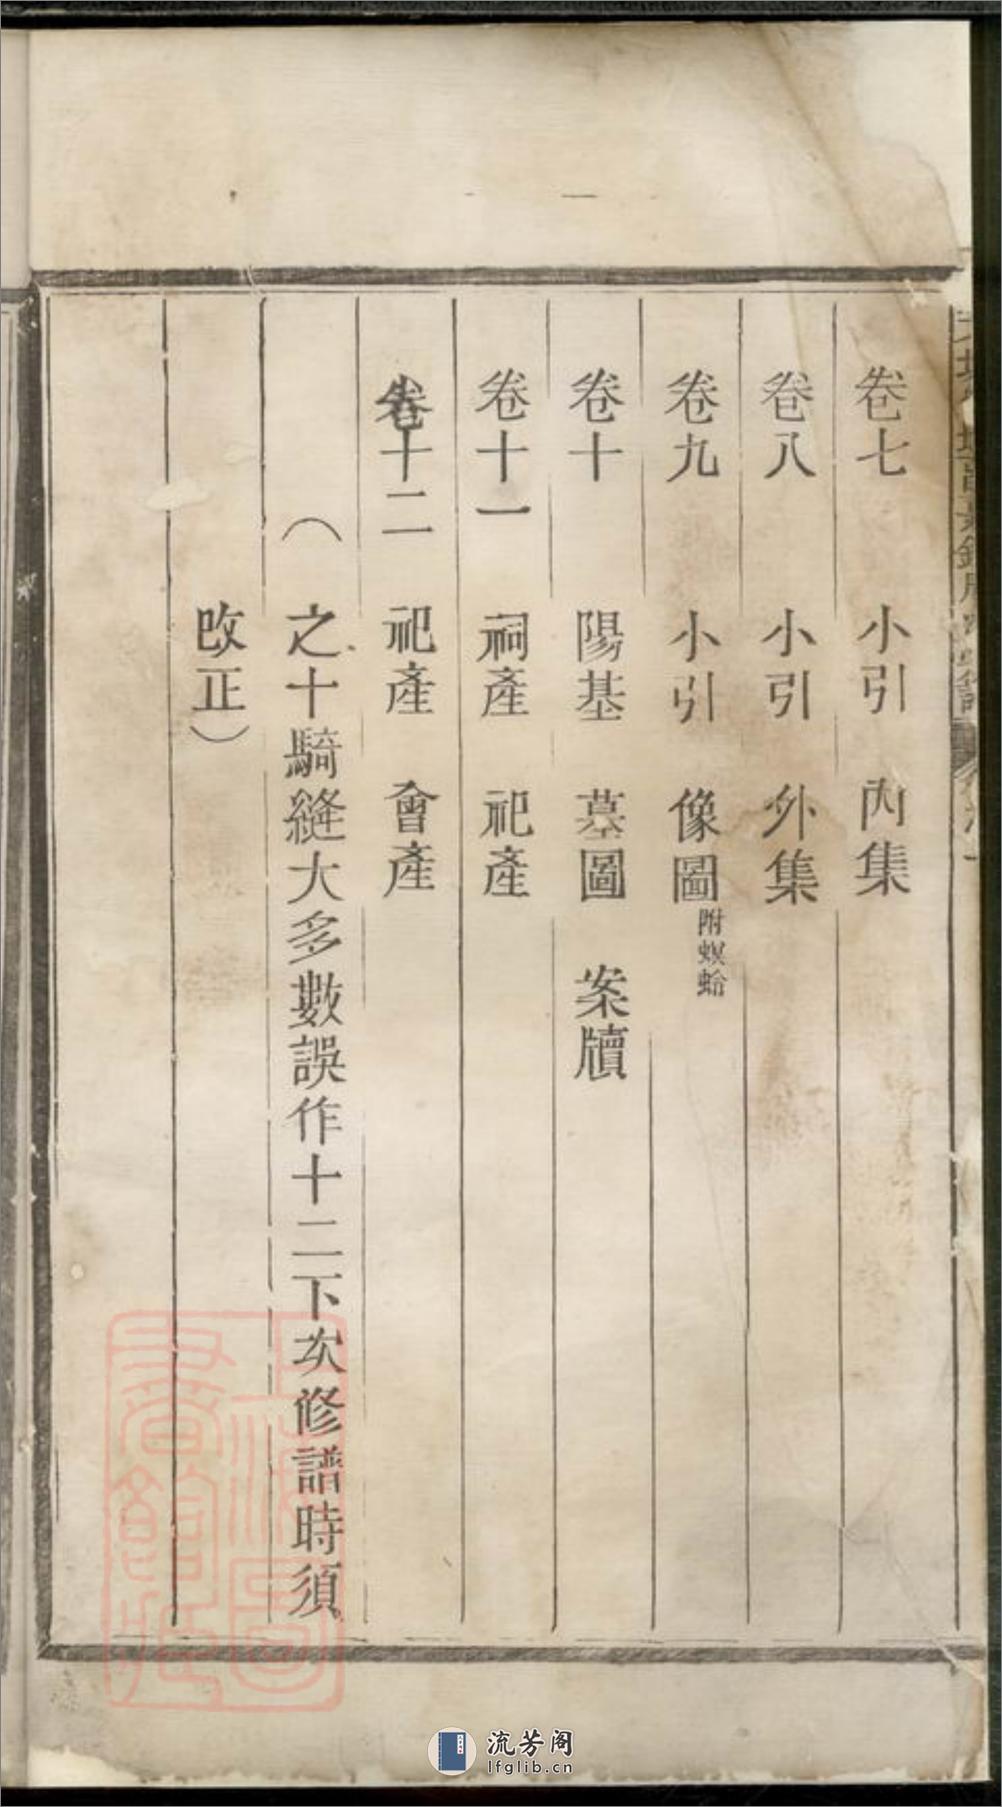 卷七　小引　內集
卷八　小引　外集
卷九　小引　像圖 附螟蛉
卷十　陽基　墓圖　案牘
卷十一　祠產　祀產
卷十二　祀產　會產
（之十騎縫大多數誤作十二下次修譜時須
改正）
上海圖書館藏
流芳阁
lfglib.cn